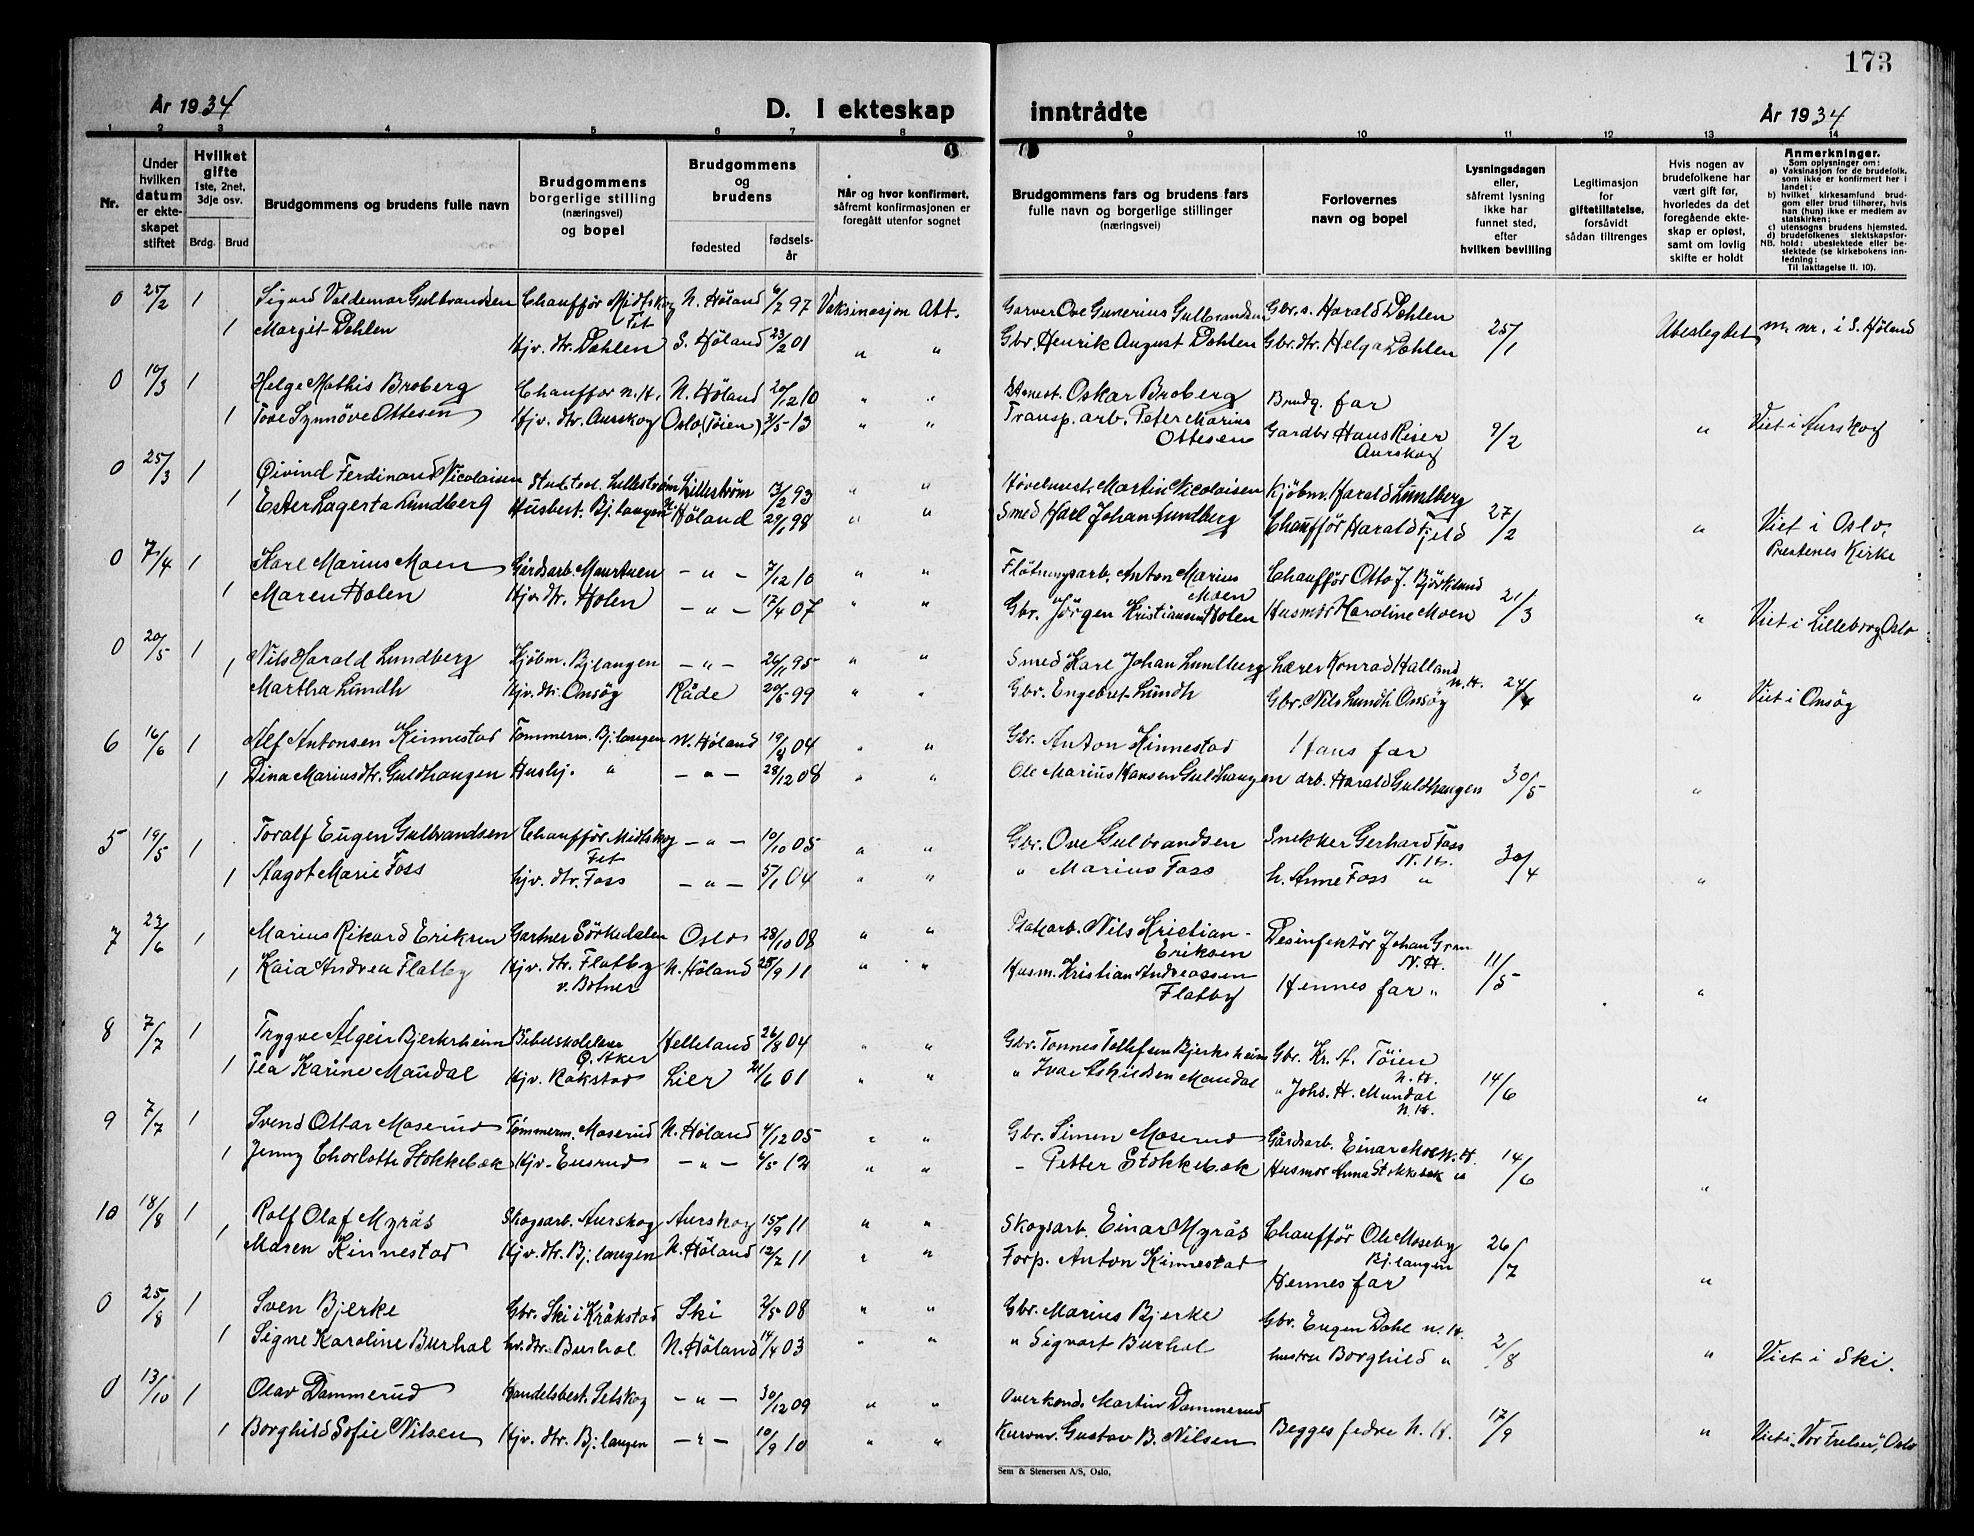 173
År 1934
D. I ekteskap
inntrådte
År 1934
1 2 3 4 5 6 7 8 9 10 11 12 13 14
Nr.
Under hvilken datum er ekteskapet stiftet
Hvilket gifte
1ste, 2net, 3dje osv.
Brdg. Brud
Brudgommens og brudens fulle navn
Brudgommens borgerlige stilling (næringsvei) og bopel
Brudgommens og brudens
fødested
fødselsår
Når og hvor konfirmert, såfremt konfirmasjonen er foregått utenfor sognet
Brudgommens fars og brudens fars fulle navn og borgerlige stillinger (næringsvei)
Forlovernes navn og bopel
Lysningsdagen eller, såfremt lysning ikke har funnet sted, efter hvilken bevilling
Legitimasjon for giftetillatelse, forsåvidt sådan tiltrenges
Hvis nogen av brudefolkene har vært gift før, hvorledes da det foregående ekteskap er opløst, samt om lovlig skifte er holdt
Anmerkninger.
Som oplysninger om:
a) Vaksinasjon for de brudefolk, som ikke er konfirmert her i landet;
b) hvilket kirkesamfund brudgom eller brud tilhører, hvis han (hun) ikke er medlem av statskirken;
c) utensogns brudens hjemsted.
d) brudefolkenes slektskapsforhold: ubeslektede eller beslektede (se kirkebokens innledning:
NB.
Til iakttagelse II. 10).
0 25/2 1 Sigurd Valdemar Gulbrandsen Chauffør Midtskog Fet N. Høland 6/7 97 Vaksinasjon Att. Garver Ove Gunerius Gulbrandsen Gbr. s. Harald Dahlen
1 Margit Dahlen Hjv. dtr. Dahlen S. Høland 23/2 01 " " Gbr. Henrik August Dahlen Gbr. dtr. Helga Dahlen 25/1 Ubeslegtet m. nr. i S. Høland
0 10/3 1 Helge Mathis Broberg Chauffør N. H. N. Høland 20/12 10 " " Oskar Broberg Brudg. far
1 Tove Synnöve Ottesen Hjv. dtr. Aurskog Oslo (Töien) 3/5 13 " " Transp. arb. Peter Marius Ottesen Gardbr Hans Riser Aurskog 9/2 " Viet i Aurskog
0 25/3 1 Øivind Ferdinand Nicolaisen Lilleström Lilleström 13/2 93 " " Hövelmest. Martin Nicolaisen Kjøbm. Harald Lundberg
1 Ester Lagerta Lundberg Husbest. Bj. langen N. Høland 29/1 98 " " Smed Karl Johan Lundberg Chauffør Harald Fjeld 27/2 " Viet i Oslo, Prestenes Kirke
0 7/4 1 Kare Marius Moen Gårdsarb. – " – 7/12 10 " " Fløtningsarb. Anton Marius Moen Chauffør Otto J. Björklund
1 Maren Holen Hjv. dtr. Holen – " – 17/4 07 " " Gbr. Jörgen Kristiansen Holen Husmor Karoline Moen 21/3 " Viet i Lilleborg, Oslo
0 20/5 1 Nils Harald Lundberg Kjøbm. Bj. langen – " – 26/11 95 " " Smed Karl Johan Lundberg Lærer Konrad Halland N. H.
1 Martha Lundh Hjv. dtr. Onsøg Råde 20/5 99 " " Gbr. Engebret Lundh Gbr. Nils Lundh Onsög 24/4 " Viet i Onsøg
6 16/6 1 Alf Antonsen Kinnestad Tömmerm. Bj. langen N. Høland 19/8 04 " " Gbr. Anton Kinnestad Hans far
1 Dina Mariusdtr. Guldhaugen Hushj. " – " – 28/12 08 " " Ole Marius Hansen Guldhaugen arb. Harald Guldhaugen 30/5 "
5 19/5 1 Toralf Eugen Gulbrandsen Chauffør Midtskog Fet – " – 10/10 05 " " Gbr. Ove Gulbrandsen Snekker Gerhard Foss N. H.
1 Aagot Marie Foss hjv. dtr. Foss – " – 5/1 04 " " " Marius Foss h. Anne Foss " 30/4 "
7 23/6 1 Marius Rikard Eriksen Gartner Sörkedalen Oslo 28/10 08 " " Nils Kristian Eriksen Desinfektør Johan Gran N. H.
1 Kaia Andrea Flatby Hjv. dtr. Flatby v. Botner N. Høland 25/9 11 " " Husm. Kristian Andreassen Flatby Hennes far " 11/5 "
8 7/7 1 Trygve Algeir Bjerksheim Bibelskolelærer Ø. Aker Helleland 26/8 04 " " Gbr. Tønnes Tollefsen Bjerksheim Gbr. Kr. A. Töien N. H.
1 Tea Karine Maudal Hjv. Rakstad Lier 21/6 01 " " " Ivar Askildsen Maudal " Johs. H. Mundal N. H. 14/6 "
9 7/7 1 Svend Ottar Moserud Tömmerm. Moserud N. Høland 4/12 05 " " Gbr. Simen Moserud Gårdsarb. Einar Moe N. H.
1 Jenny Charlotte Stokkebæk Hjv. Eusrud – " – 6/5 12 " " – Petter Stokkebæk Husmor Anna Stokkebæk " 14/6 "
10 18/8 1 Rolf Olaf Myrås Skogsarb. Aurskog Aurskog 15/9 11 " " Skogsarb. Einar Myrås Chauffør Ole Moseby Bj. langen
1 Maren Kinnestad Hjv. dtr. Bj. langen N. Høland 12/7 11 " " Forp. Anton Kinnestad Hennes far 26/7 "
0 25/8 1 Sven Bjerke Gbr. Ski i Kråkstad Ski 2/5 08 " " Gbr. Marius Bjerke Gbr. Eugen Dahl N. H.
1 Signe Karoline Burhol hv. dtr. Burhol N. Høland 14/4 03 " " " Sigvart Burhol hustru Borghild " 2/8 " Viet i Ski.
0 13/10 1 Olav Dammerud Handelsbest. Setskog – " – 30/12 09 " " Overkond. Martin Dammerud
1 Borghild Sofie Nilsen Hjv. dtr. Bj. langen – " – 10/9 10 " " Gustav B. Nilsen Begges fedre N. H. 17/9 " Viet i "Vor Frelser", Oslo
Sem & Stenersen A/S, Oslo,